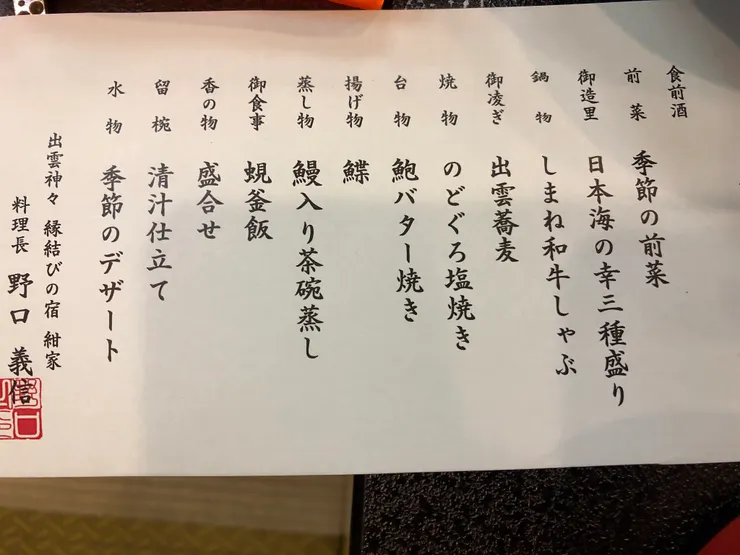 食前酒
前菜 季節の前菜
御造里 日本海の幸三種盛り
鍋物 しまね和牛しゃぶ
御凌ぎ 出雲蕎麦
焼物 のどぐろ塩焼き
台物 鮑バター焼き
揚げ物 鰈
蒸し物 鰻入り茶碗蒸し
御食事 蜆釜飯
香の物 盛合せ
留椀 清汁仕立て
水物 季節のデザート
出雲神々 縁結びの宿 紺家
料理長 野口 義信